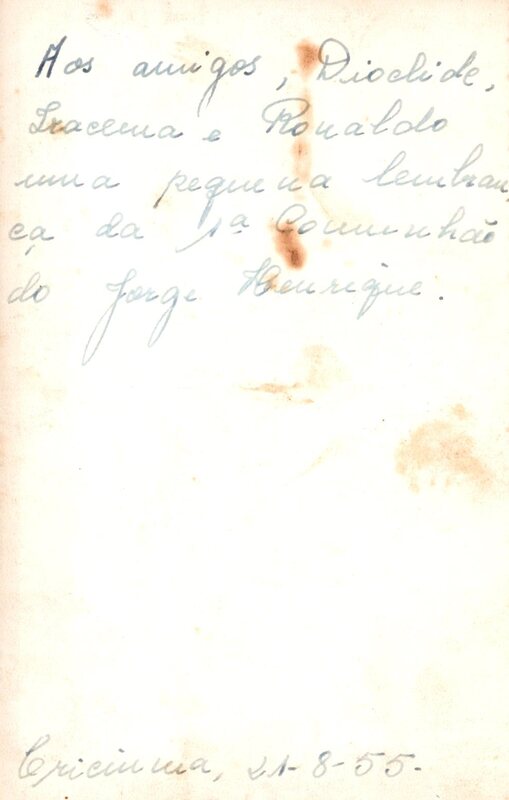 Aos amigos, Dioclide,
Iracema e Ronaldo
uma pequena lembran
ça da 1ª Comunhão
do Jorge Henrique.
Criciuma, 21-8-55-